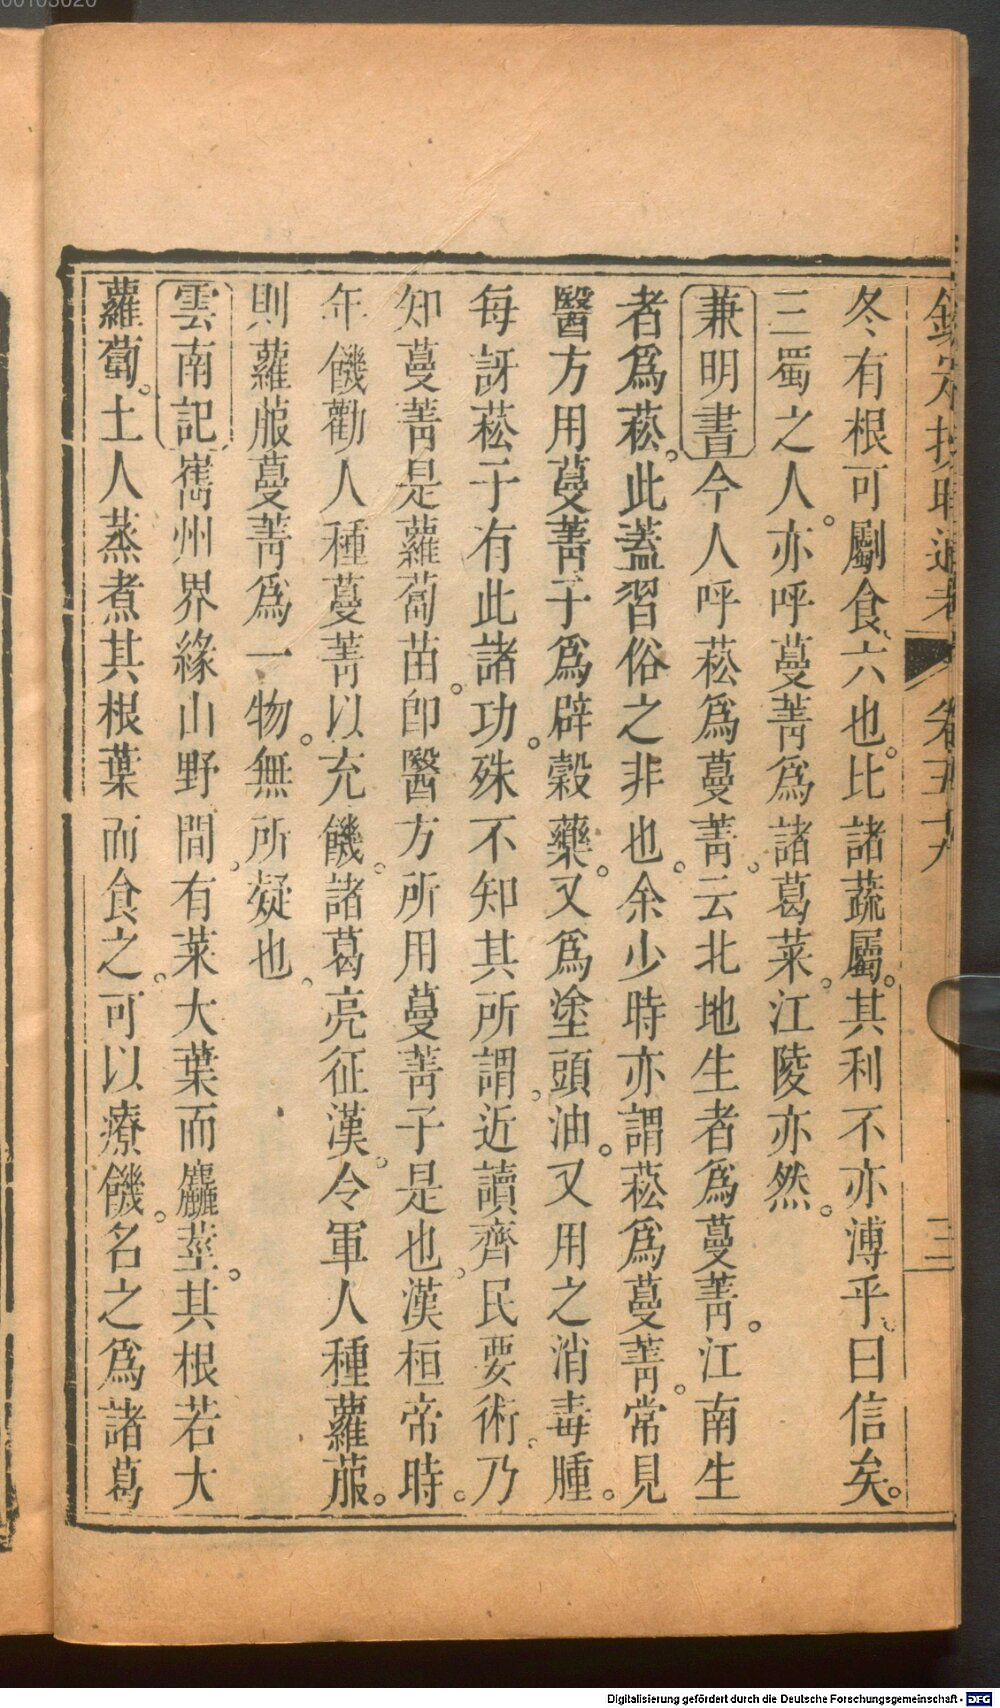 冬有根可劚食、六也。比諸蔬屬。其利不亦溥乎。曰信矣。
三蜀之人。亦呼蔓菁爲諸葛菜。江陵亦然。
兼明書今人呼菘爲蔓菁。云北地生者爲蔓菁。江南生
者爲菘。此蓋習俗之非也。余少時亦謂菘爲蔓菁。常見
醫方用蔓菁子爲辟穀藥。又爲塗頭油。又用之消毒腫。
每訝菘子有此諸功。殊不知其所謂。近讀齊民要術。乃
知蔓菁是蘿蔔苗。卽醫方所用蔓菁子是也。漢桓帝時。
年饑勸人種蔓菁以充饑。諸葛亮征漢。令軍人種蘿菔。
則蘿菔蔓菁爲一物。無所疑也。
雲南記嶲州界緣山野間。有菜大葉而麤莖。其根若大
蘿蔔。土人蒸煮其根葉而食之。可以療饑。名之爲諸葛
欽定授時通考 卷五十九 三
Digitalisierung gefördert durch die Deutsche Forschungsgemeinschaft - DFG